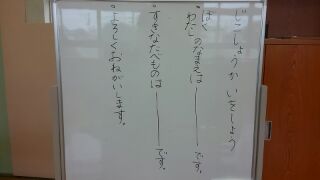 じこしょうかいをしよう
ぼく
・わたしのなまえは―――です。
・すきなたべものは―――です。
・よろしくおねがいします。